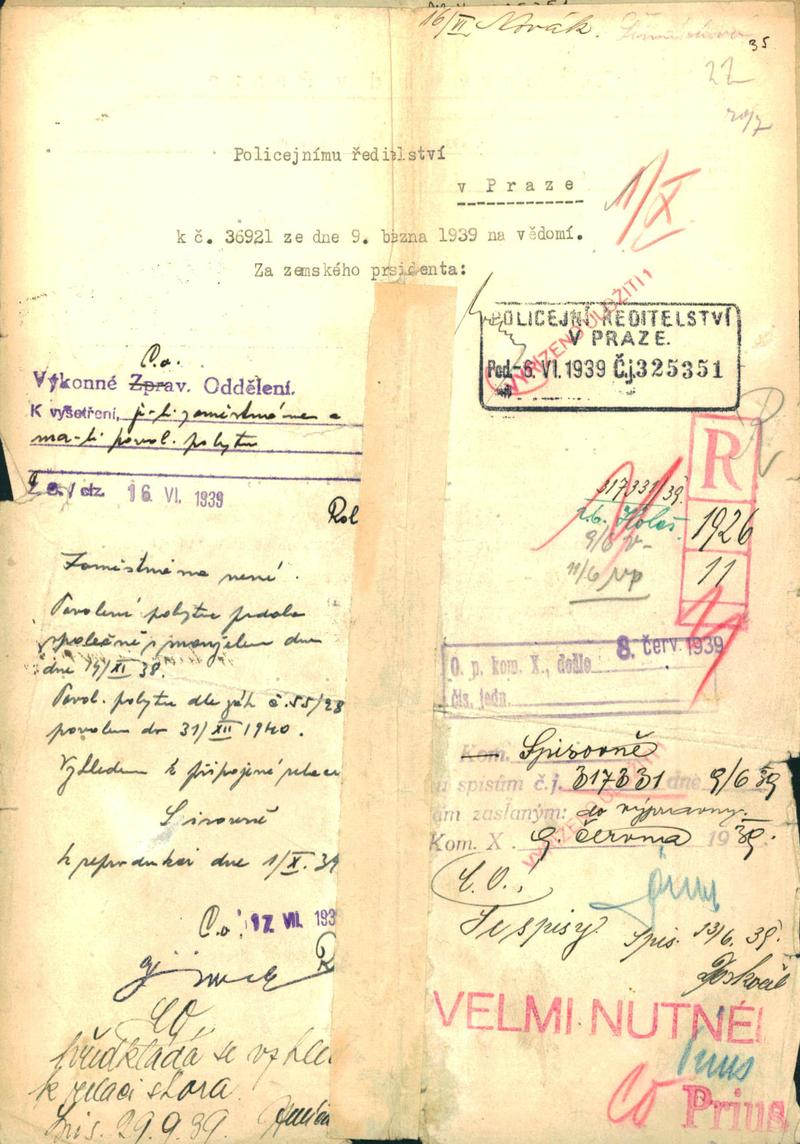 16/VI Novák.
35
22
Policejnímu ředitelství
v Praze
k č. 36921 ze dne 9. března 1939 na vědomí.
Za zemského presidenta:
1/X
VYŘÍZENO ULOŽITI!
POLICEJNÍ ŘEDITELSTVÍ
V PRAZE.
Pod.-6.VI.1939 Čj.325351
C.o.
Výkonné Zprav. Oddělení.
K vyšetření, je-li zaměstnána a
má-li povol. pobytu
16 VI. 1939
Rol
Zaměstnána není.
Povolení pobytu podala
společně s manželem dne
dne 14/XI 38.
Povol. pobytu dle zák č. 55/28
povolen do 31/XII 1940.
Vzhledem k připojené relaci
Spisovně
k reprodukci dne 1/X. 39
C.o. 17. VII. 193
CO
předkládá se vzhle
k relaci shora.
Spis. 29.9.39.
317331/39.
26. Holeš
9/6
11/6
R
1926
11
8. červ. 1939
O. p. kom. X., došlo
čís. jedn.
Kom. Spisovně
spisům č.j. 317331 dne 9/6 39
zaslaným: do výpravny.
Kom. X. 9. června 1939.
VYŘÍZENO ULOŽITI!
C.O.,
Se spisy
Spis. 13/6. 39.
Doskočil
VELMI NUTNÉ!
Prius
CO Prius